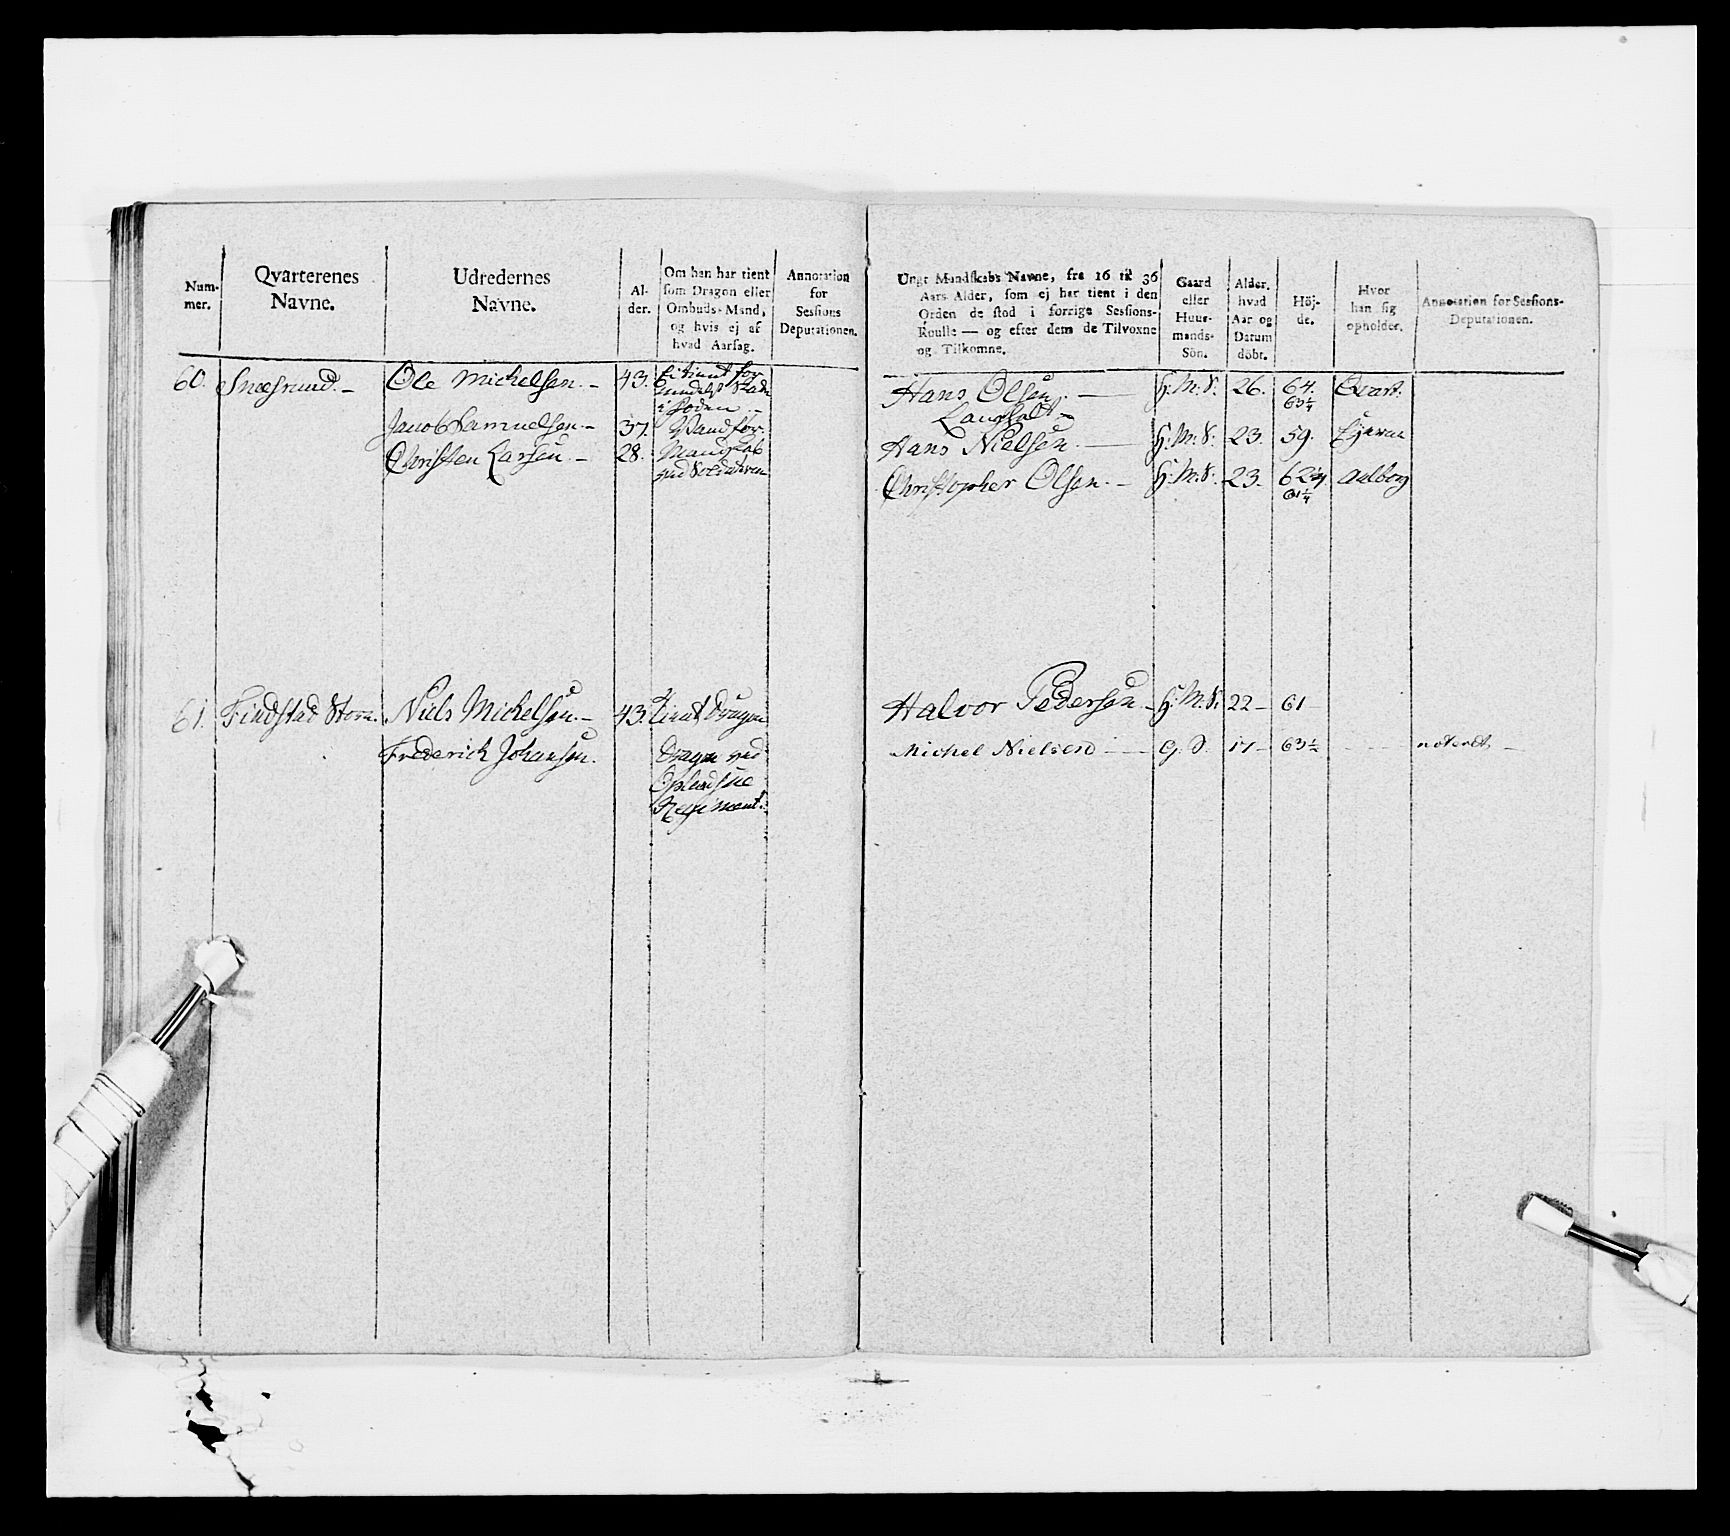 Num-
mer.
Qvarterenes
Navne.
Udredernes
Navne.
Al-
der.
Om han har tient
som Dragon eller
Ombuds-Mand,
og hvis ej af
hvad Aarsag.
Annotation
for
Sessions
Deputationen.
60. Snesrud. - Ole Michelsen. - 43.
i
Jacob Samuelsen. - 37.
Christen Larsen. - 28. Mandskab
61. Findstad Store. Niels Michelsen. - 43. tient Dragon
Frederich Johansen. Dragon ved
Oplandske
Regiment.
Ungt Mandskabs Navne, fra 16 til 36
Aars Alder, som ej har tient i den
Orden de stod i forrige Sessions-
Roulle — og efter dem de Tilvoxne
og Tilkomne.
Gaard
eller
Huus-
mands-
Sön.
Alder.
hvad
Aar og
Datum
döbt.
Höj-
de.
Hvor
han sig
opholder.
Annotation for Sessions-
Deputationen.
Hans Olsen. — H. M. S. 26. 64. Qvart.
63 1/4
Hans Nielsen. — H. M. S. 23. 59.
Christopher Olsen. - H. M. S. 23. 62 Aalborg
61 1/4
Halvor Pedersen - H. M. S. 22 - 61 -
Michel Nielsen — G. S. 17 - 63 1/2 noteret -